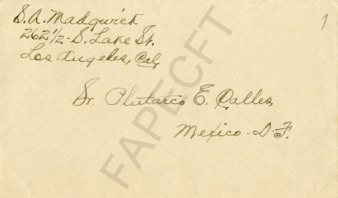 S. A. Madgwick
262 1/2 - S. Lake St.
Los Angeles, Cal,
1
Sr. Plutarco E. Calles
Mexico - D - F.
FAPECFT